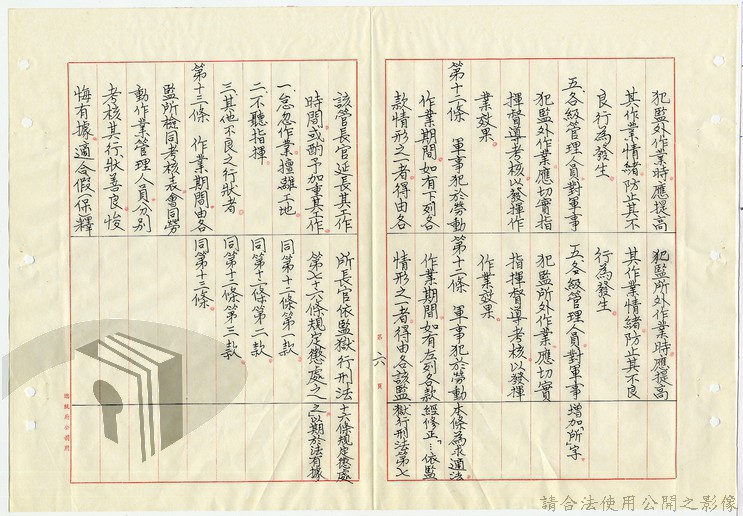 犯監外作業時應提高
其作業情緒防止其不
良行為發生
五、各級管理人員對軍事
犯監外作業應切實指
揮督導考核以發揮作
業效果
第十二條 軍事犯於勞動
作業期間如有下列各
款情形之一者得由各
該管長官延長其工作
時間或酌予加重其工作
一、怠忽作業擅離工地
二、不聽指揮
三、其他不良之行狀者
第十三條 作業期間由各
監所檢同考核表會同勞
動作業管理人員分別
考核其行狀善良悛
悔有據適合假(保)釋
犯監所外作業時應提高
其作業情緒防止其不良
行為發生
五、各級管理人員對軍事
犯監所外作業應切實
指揮督導考核以發揮
作業效果
第十二條 軍事犯於勞動
作業期間如有左列各款
情形之一者得由各該監
所長官依監獄行刑法
第七十六條規定懲處之
同第十二條第一款
同第十二條第二款
同第十二條第三款
同第十三條
增加「所」字
本條為求適法
經修正「…依監
獄行刑法第七
十六條規定懲處
之」以期於法有據
第六頁
請合法使用公開之影像